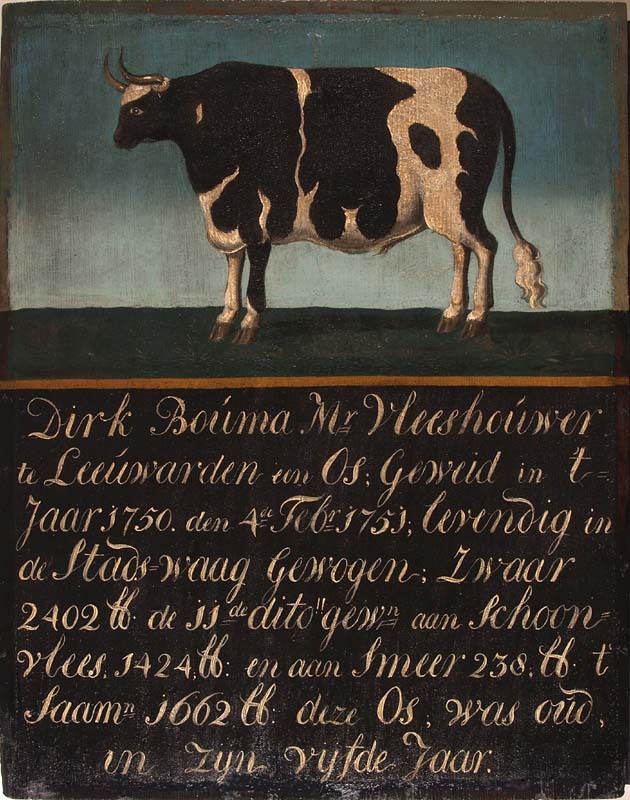 Dirk Boúma Mr Vleeshoúwer
te Leeúwarden een Os, Geweid in 't
Jaar 1750. den 4de Febr 1751, levendig in
de Stads=waag Gewogen; Zwaar
2402 ℔. de 11de dito" gewn aan Schoon=
vlees, 1424, ℔: en aan Smeer 238, ℔. t'
Saamn 1662 ℔: deze Os, was oud,
in zyn vyfde Jaar.